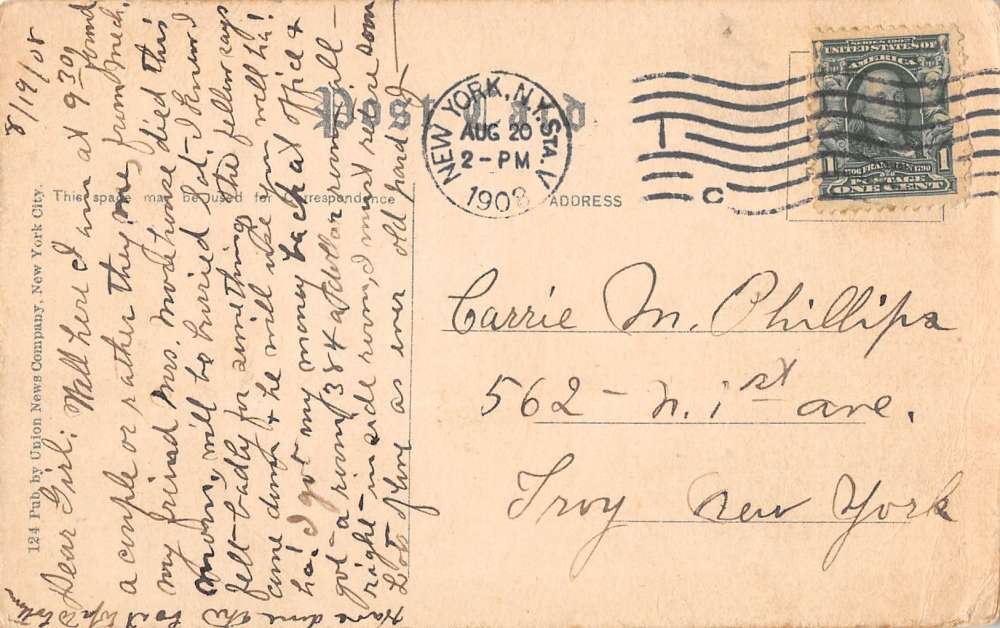 Post Card
124 Pub. by Union News Company, New York City.
This space may be used for correspondence
ADDRESS
NEW YORK, N.Y. STA. V
AUG 20
2-PM
1908
C
SERIES 1902
UNITED STATES OF
AMERICA
1 FRANKLIN 1
1706 1790
POSTAGE
ONE CENT
8/19/08
Dear Girl: Well here I am at 9-30, found
a couple or rather they me, from Mech.
my friend Mrs. Morehouse died this
morn, will be buried Sat- I know I
felt badly for something the fellow says
came down & he will use you well ha!
ha! I got my money back at office &
got a room, 384 a dollar room, all
right-inside room, I must retire soon
Lots of love as ever old pard I
have done the
boat
Carrie M. Phillips
562-N. 1st ave.
Troy New York